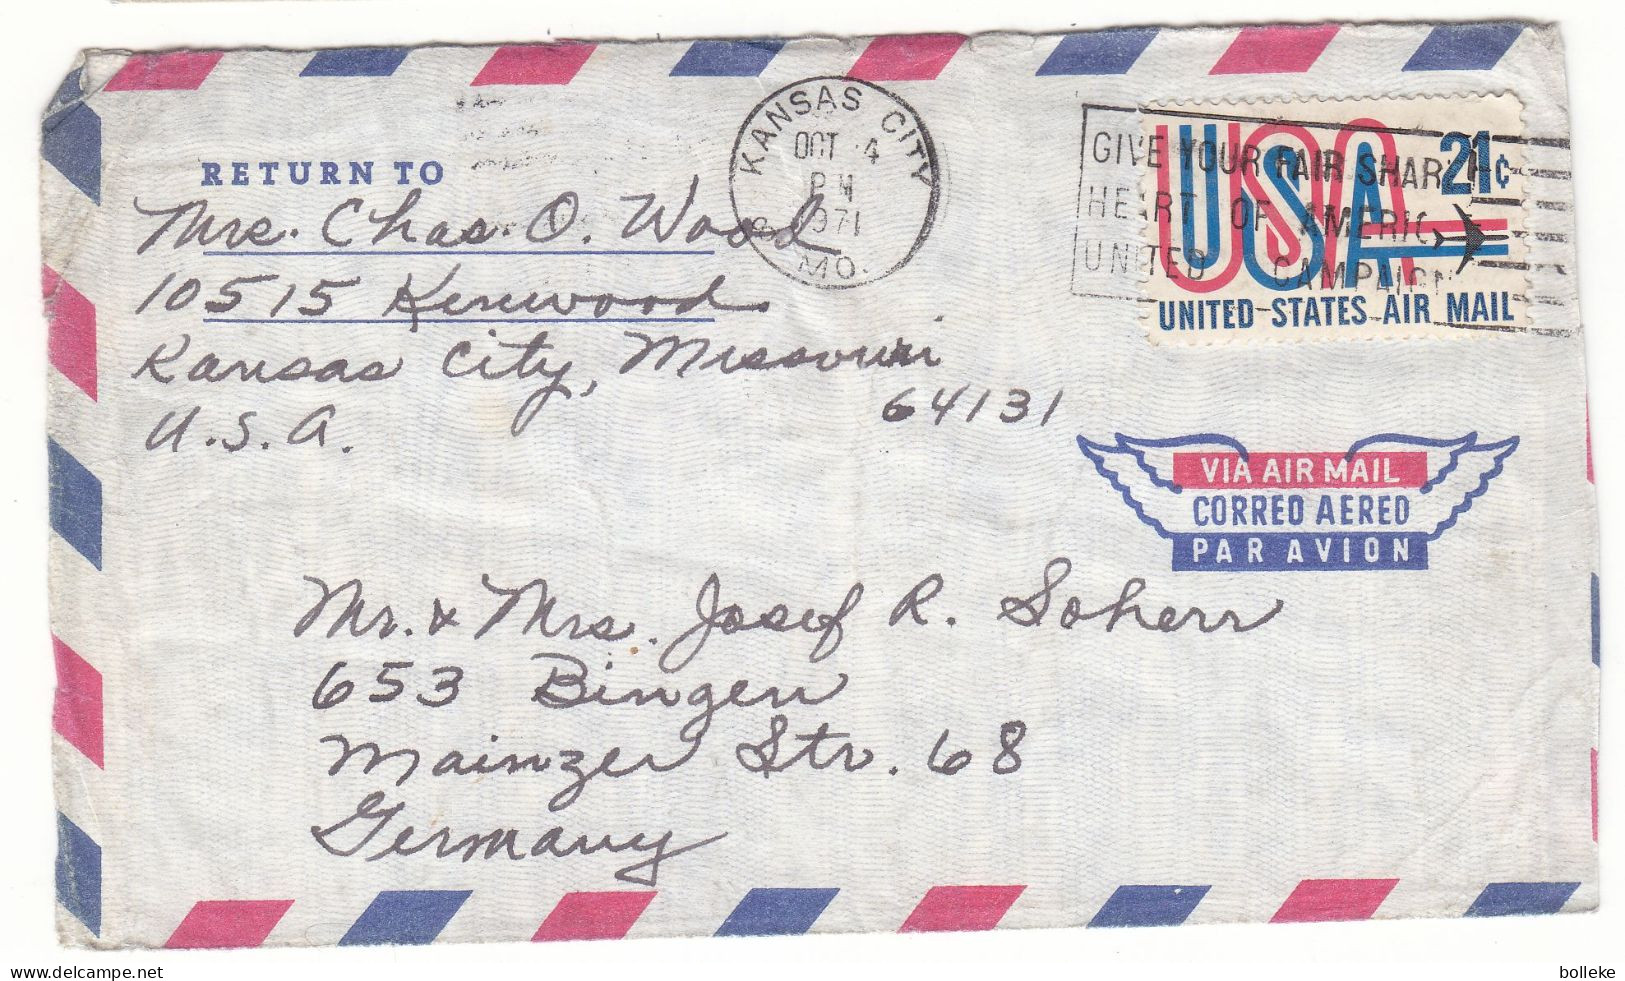 RETURN TO
Mrs. Chas. O. Wood
10515 Kenwood
Kansas City, Missouri
64131
U.S.A.
KANSAS CITY
OCT 4
PM
1971
MO.
GIVE YOUR FAIR SHARE
HEART OF AMERICA
UNITED CAMPAIGN
USA 21¢
UNITED STATES AIR MAIL
VIA AIR MAIL
CORREO AEREO
PAR AVION
Mr. & Mrs. Josef R. Soherr
653 Bingen
Mainzer Str. 68
Germany
delcampe.net
bolleke